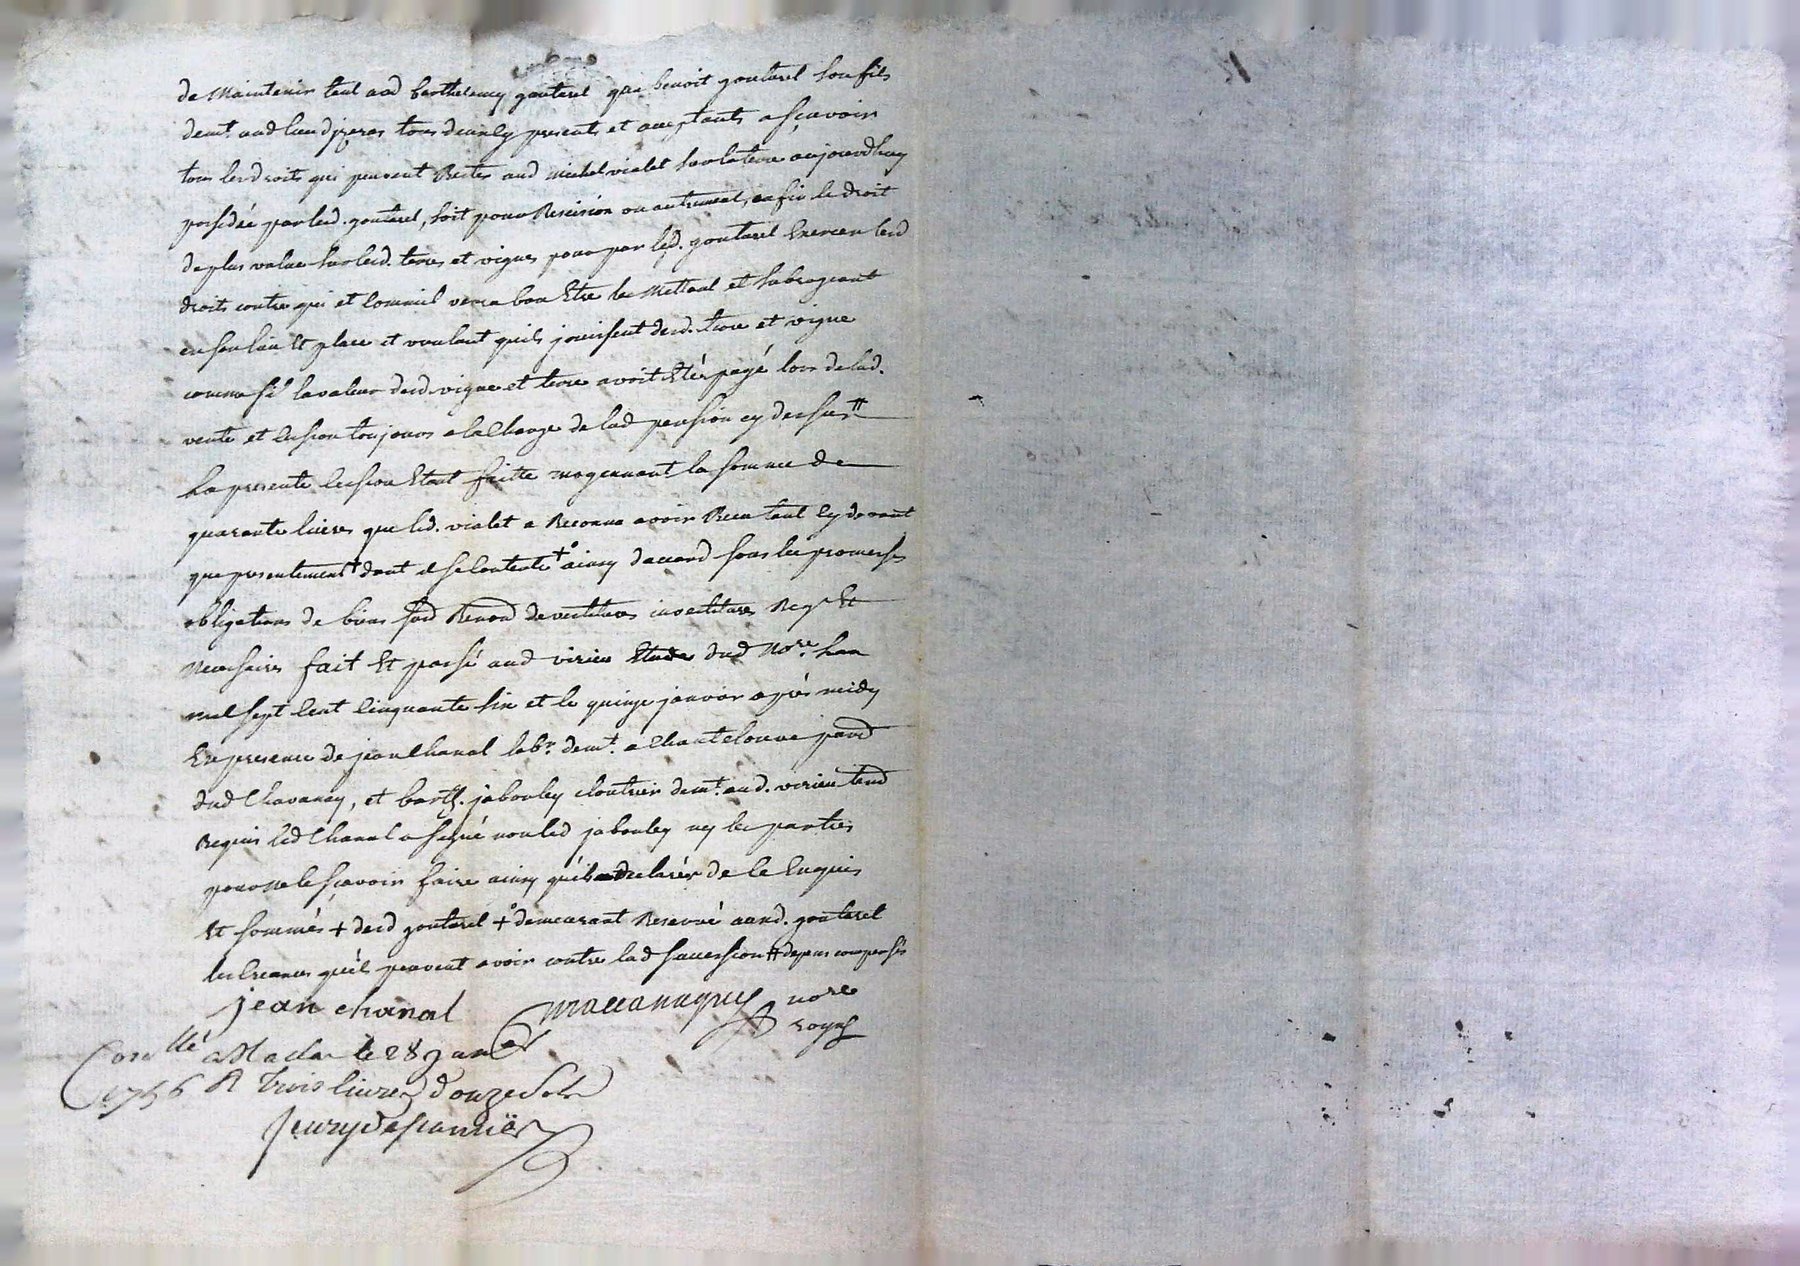 de Maintenir tant aud barthelemy gouterel que benoit gouterel son fils
demt aud lieu dizeras tous deux icy presents et acceptants a sçavoir
tous les droits qui peuvent Rester aud michel vialet sur la terre aujourdhuy
possedée par led. gouterel, soit pour Rescision ou autrement, enfin le droit
de plus value sur lesd. terres et vignes pour par led. gouterel Exercer lesd
droits contre qui et comm'il verra bon Etre les Mettant et subrogeant
en son lieu Et place et voulant quils jouissent desd. terre et vigne
comme si la valeur desd. vigne et terre avoit Eté payé lors de lad.
vente et cession toujours a la Charge de lad pension cy dessus #
La presente Cession Etant faitte moyennant la somme de
quarante livres que led. vialet a Reconnu avoir Receu tant Cy devant
que presentement + dont il se Contente +° ainsy d'accord sous les promesses
obligations de biens Renond devestitures investitures Reqses Et
Necessaires fait Et passé aud virieu Etude dud Nore. L'an
mil sept Cent Cinquante six et le quinze janvier après midy
En presence de jean Chanal labr. demt. a Chantelouve pard
dud Chavanay, et barth. jabouley cloutrier demt. aud. virieu temd
Requis led Chanal a signé non led jabouley ny les parties
pour ne le sçavoir faire ainsy qu'ils ont declaré de ce Enquis
Et sommés + desd gouterel +° demeurant Reservé aud. gouterel
les Creances qu'ils peuvent avoir contre lad succession # depens compensés
jean chanal
nore
royal
Conllé a Maclas le 28 janer
1756 R Trois livres douze sols